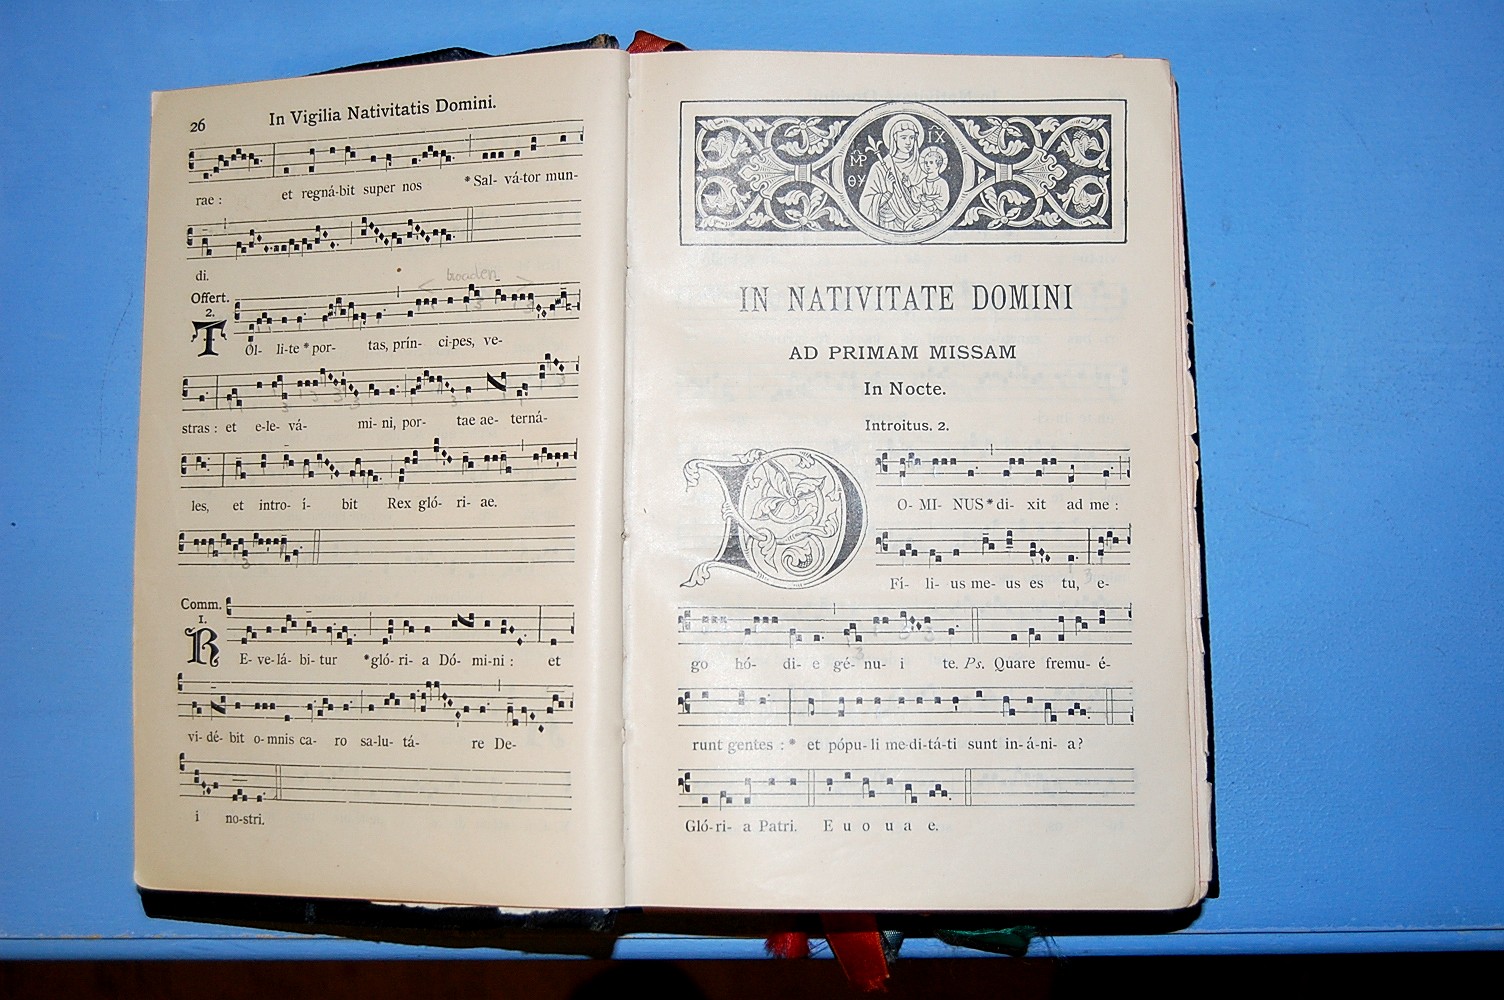 26 In Vigilia Nativitatis Domini.
rae : et regná-bit super nos *Sal- vá-tor mun-
di.
broaden
Offert.
2.
TOl- li-te * por- tas, prín- ci-pes, ve-
stras : et e-le- vá- mi- ni, por- tae ae- terná-
les, et intro- í- bit Rex gló- ri- ae.
Comm.
1.
RE- ve-lá- bi- tur *gló- ri- a Dó- mi-ni : et
vi- dé- bit o-mnis ca- ro sa-lu- tá- re De-
i no-stri.
MP
ΘY
IX
IN NATIVITATE DOMINI
AD PRIMAM MISSAM
In Nocte.
Introitus. 2.
DO- MI- NUS * di- xit ad me :
Fí- li- us me- us es tu, e-
go hó- di- e gé- nu- i te. Ps. Quare fremu- é-
runt gentes : * et pópu- li me-di-tá-ti sunt in-á-ni- a?
Gló-ri- a Patri. E u o u a e.